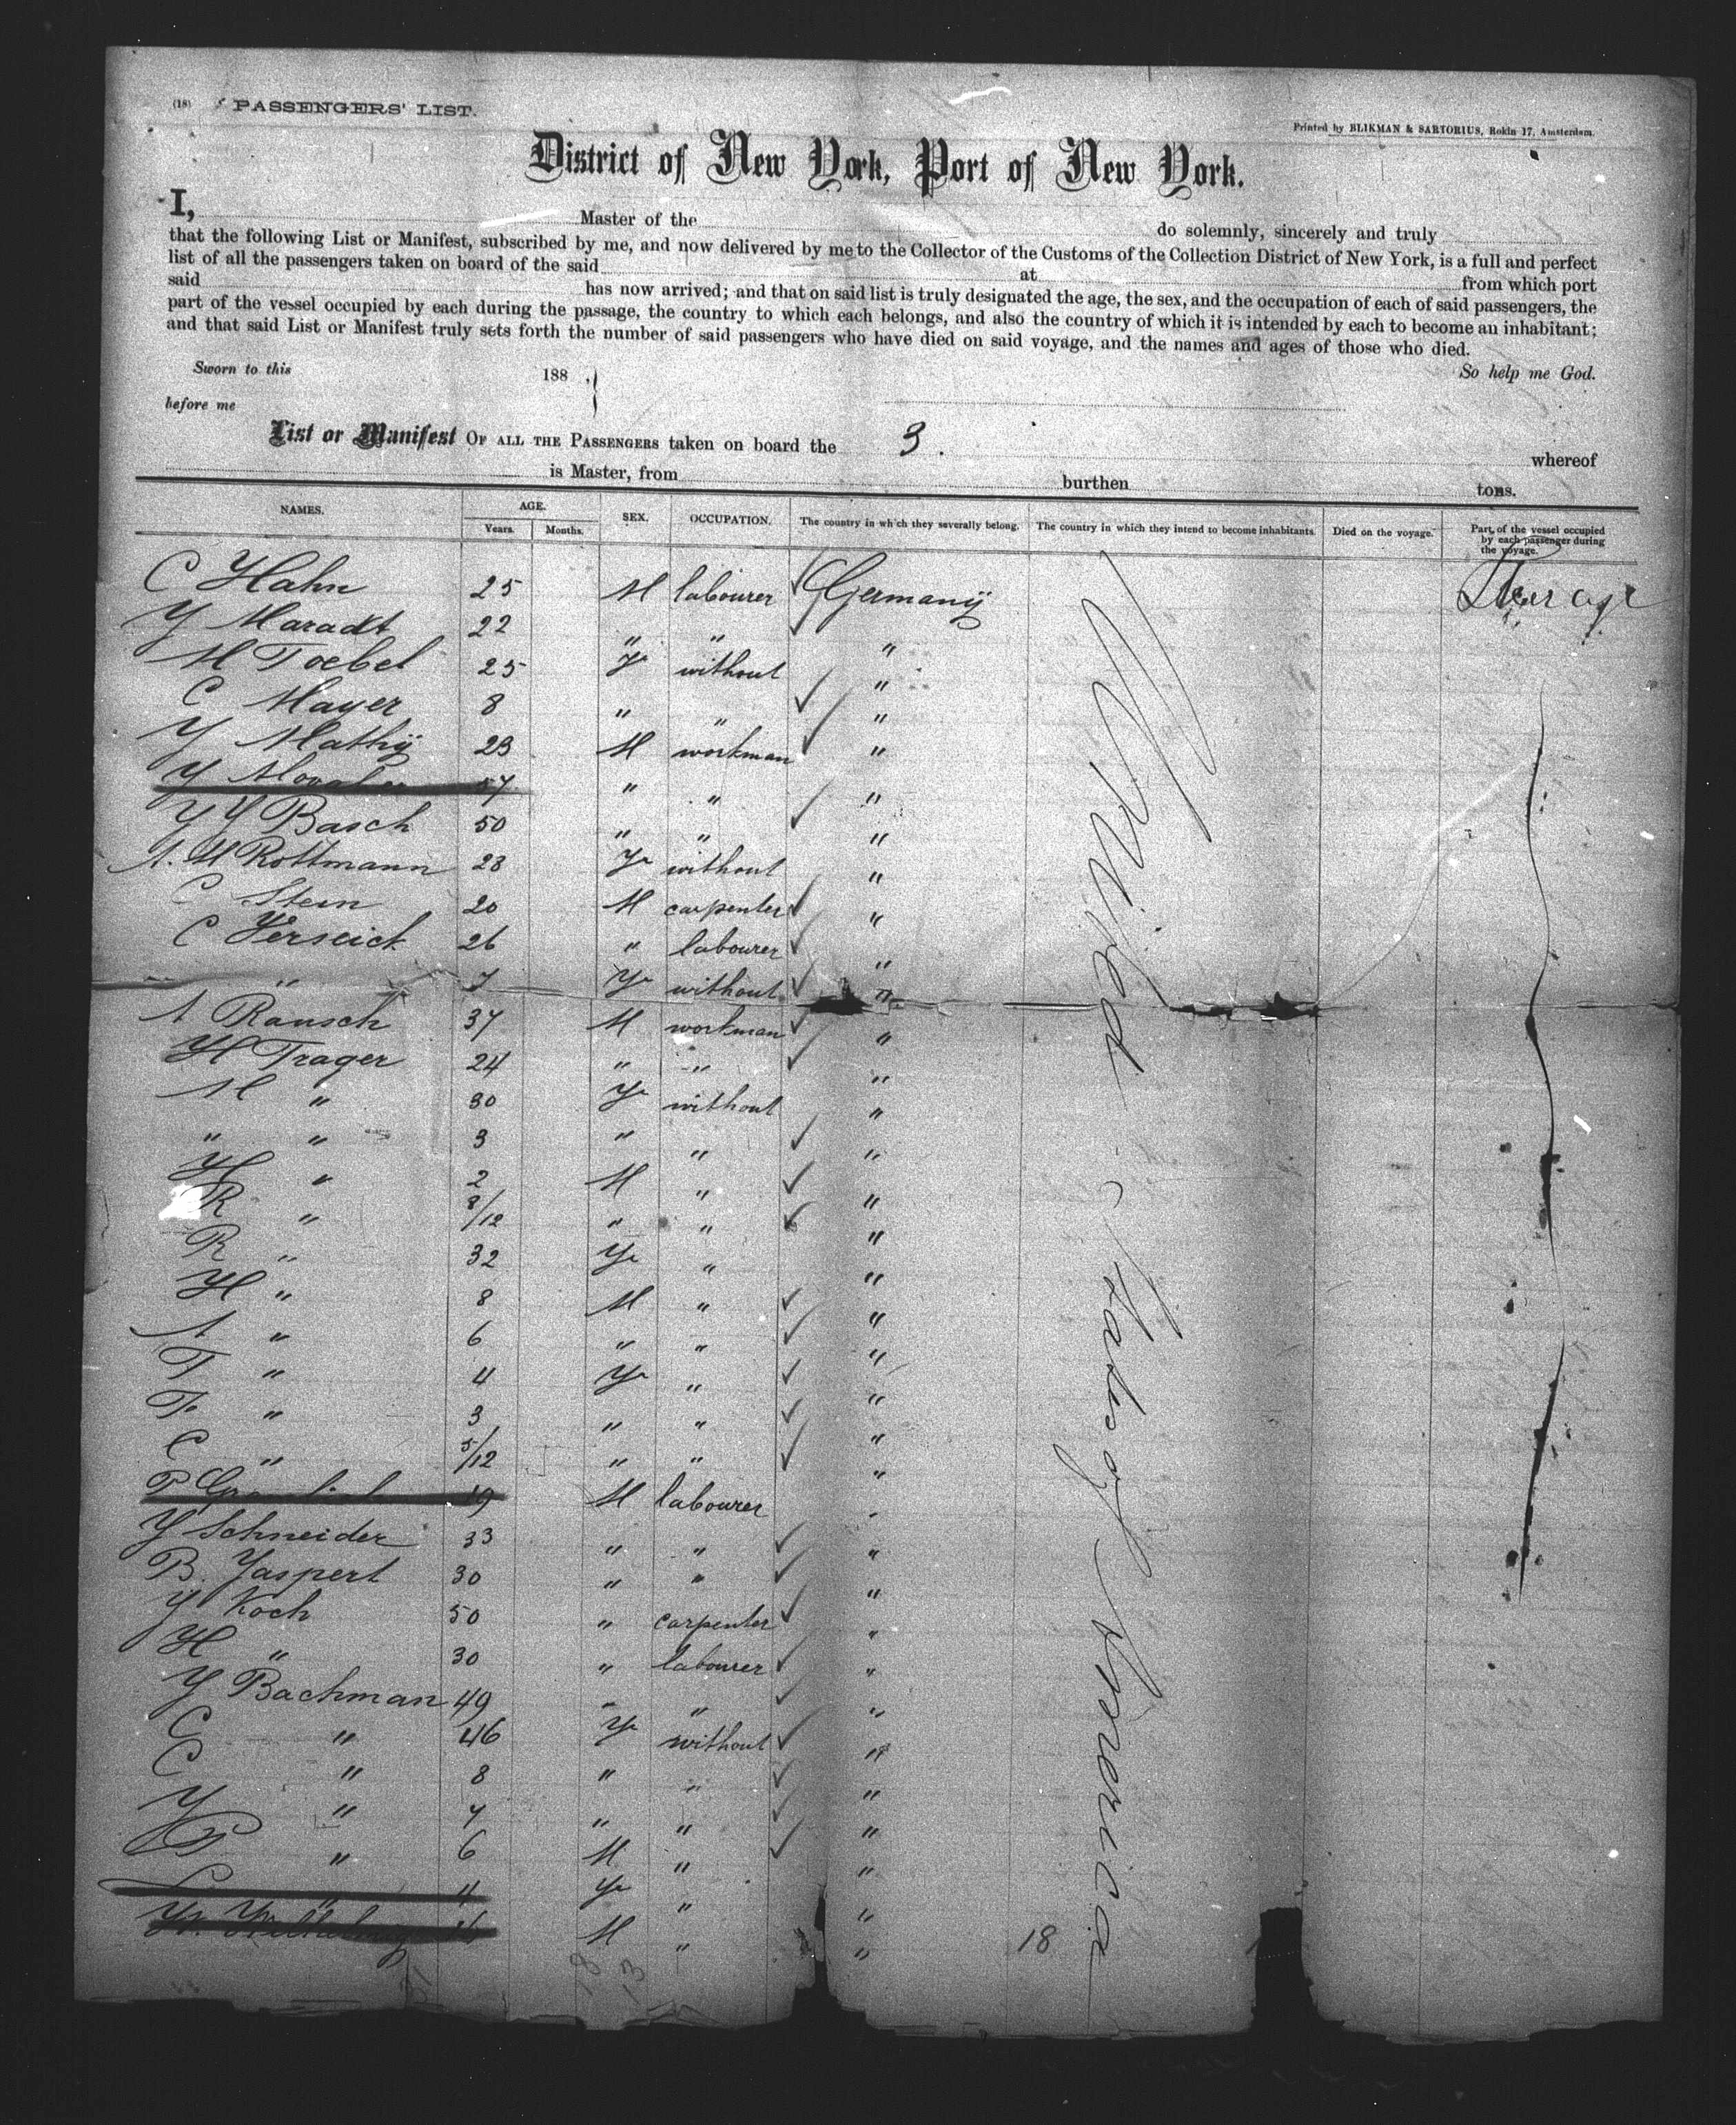 (18) PASSENGERS' LIST.
Printed by BLIKMAN & SARTORIUS, Rokin 17, Amsterdam.
District of New York, Port of New York.
I, Master of the do solemnly, sincerely and truly
that the following List or Manifest, subscribed by me, and now delivered by me to the Collector of the Customs of the Collection District of New York, is a full and perfect
list of all the passengers taken on board of the said at from which port
said has now arrived; and that on said list is truly designated the age, the sex, and the occupation of each of said passengers, the
part of the vessel occupied by each during the passage, the country to which each belongs, and also the country of which it is intended by each to become an inhabitant;
and that said List or Manifest truly sets forth the number of said passengers who have died on said voyage, and the names and ages of those who died.
Sworn to this 188 , So help me God.
before me
List or Manifest OF ALL THE PASSENGERS taken on board the 3. whereof
is Master, from burthen tons.
NAMES. AGE. Years. Months. SEX. OCCUPATION. The country in which they severally belong. The country in which they intend to become inhabitants. Died on the voyage. Part of the vessel occupied by each passenger during the voyage.
C Hahn 25 M labourer Germany Steerage
Y Maradt 22 " " "
M Toebel 25 F without "
C Mayer 8 " " "
Y Mathij 23 M workman "
Y 57 " " "
Y Y Basch 50 " " "
A. M Rottmann 28 F without "
C Stein 20 M carpenter "
C Yerseick 26 " labourer "
" 7 F without "
A Rausch 37 M workman "
H Trager 24 " " "
M " 30 F without "
" " 3 " " "
H " 2 M " "
R " 8/12 " " "
R " 32 F " "
H " 8 M " "
A " 6 " " "
T " 4 F " "
F " 3 " " "
C " 5/12 " " "
P 19 M labourer "
Y Schneider 33 " " "
B. Jaspert 30 " " "
Y Koch 50 " carpenter "
H " 30 " labourer "
Y Bachman 49 " " "
C " 46 F without "
C " 8 " " "
Y " 7 " " "
P " 6 M " "
" 4 F " "
M " "
United States of America
18
18 13